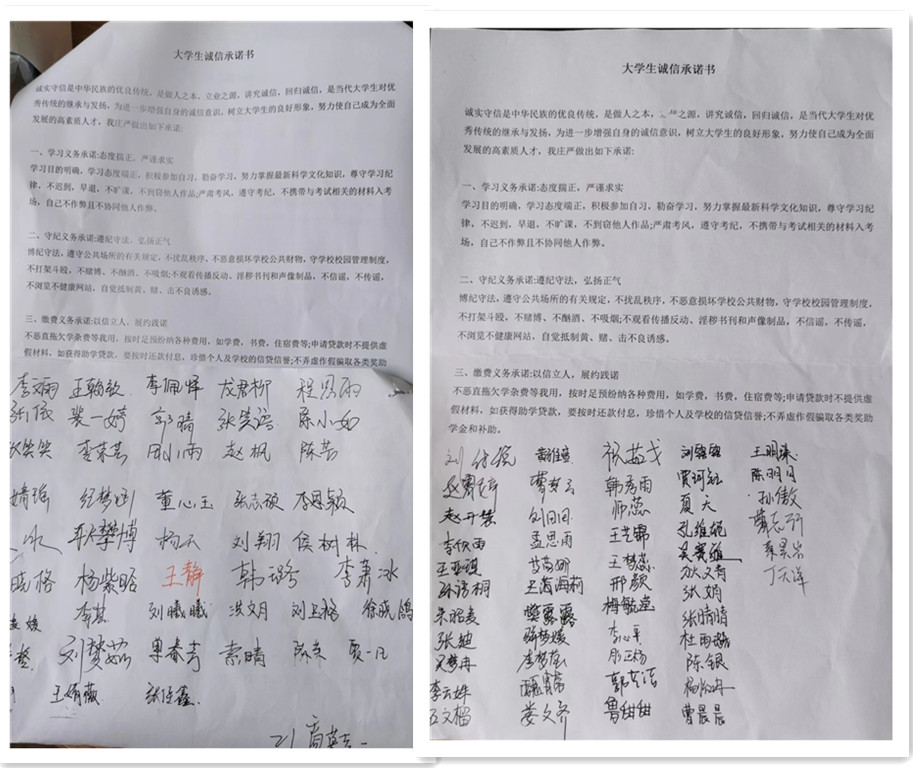 大学生诚信承诺书
诚实守信是中华民族的优良传统，是做人之本，立业之源，讲究诚信，回归诚信，是当代大学生对优
秀传统的继承与发扬，为进一步增强自身的诚信意识，树立大学生的良好形象，努力使自己成为全面
发展的高素质人才，我庄严做出如下承诺:
一、学习义务承诺:态度揣正，严谨求实
学习目的明确，学习态度端正，积极参加自习，勤奋学习，努力掌握最新科学文化知识，尊守学习纪
律，不迟到，早退，不旷课，不到窃他人作品;严肃考风，遵守考纪，不携带与考试相关的材料入考
场，自己不作弊且不协同他人作弊。
二、守纪义务承诺:遵纪守法，弘扬正气
博纪守法，遵守公共场所的有关规定，不扰乱秩序，不恶意损坏学校公共财物，守学校校园管理制度，
不打架斗殴，不赌博、不酗酒、不吸烟;不观看传播反动、淫秽书刊和声像制品，不信谣，不传谣，
不浏览不健康网站，自觉抵制黄、赌、击不良诱感。
三、缴费义务承诺:以信立人，展约践诺
不恶直拖欠学条费等我用，按时足预纷纳各种费用，如学费，书费，住宿费等;申请贷款时不提供虚
假材料，如获得助学贷款，要按时还款付息，珍惜个人及学校的信贷信誉;不弄虚作假骗取各类奖助
李佩烨 龙君柳 程思雨
张依 裴一婷 郭晴 张笑语 陈小如
笑笑 李荣芳 田小雨 赵枫 陈芳
纪梦涵 董心玉 张志硕 李恩颖
杨天 刘翔 侯树林
晓格 杨紫晗 王静 韩璐 李萧冰
李甚 刘曦曦 洪文月 徐晓鸽
刘梦茹 单春芳 素晴 陈荣 夏一凡
王婧薇 张佳鑫
大学生诚信承诺书
诚实守信是中华民族的优良传统，是做人之本，之源，讲究诚信，回归诚信，是当代大学生对优
秀传统的继承与发扬，为进一步增强自身的诚信意识，树立大学生的良好形象，努力使自己成为全面
发展的高素质人才，我庄严做出如下承诺:
一、学习义务承诺:态度揣正，严谨求实
学习目的明确，学习态度端正，积极参加自习，勤奋学习，努力掌握最新科学文化知识，尊守学习纪
律，不迟到，早退，不旷课，不到窃他人作品;严肃考风，遵守考纪，不携带与考试相关的材料入考
场，自己不作弊且不协同他人作弊。
二、守纪义务承诺:遵纪守法，弘扬正气
博纪守法，遵守公共场所的有关规定，不扰乱秩序，不恶意损坏学校公共财物，守学校校园管理制度，
不打架斗殴，不赌博、不酗酒、不吸烟;不观看传播反动、淫秽书刊和声像制品，不信谣，不传谣，
不浏览不健康网站，自觉抵制黄、赌、击不良诱感。
三、缴费义务承诺:以信立人，展约践诺
不恶直拖欠学条费等我用，按时足预纷纳各种费用，如学费，书费，住宿费等;申请贷款时不提供虚
假材料，如获得助学贷款，要按时还款付息，珍惜个人及学校的信贷信誉;不弄虚作假骗取各类奖助
学金和补助。
祝茹戈 王明珠
韩秀雨 贾珂钰 陈明月
刘田田 师蕊 夏天 孙傲
李欣雨 孟思雨 王艺锦 孔维妮
王亚琪 王梦蕊 吴赛雅
邢颜 张文青 丁天洋
樊露露 张娟
张迪 李心平 张晴晴
吴梦冉 李梦莹 杜雨璐
李云姝 魏宵常 郭英洁 陈银
石文榴 娄文齐 鲁甜甜 曹晨晨